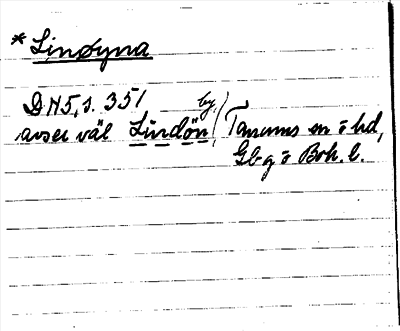 * Linøyna
DN5, s. 351
avser väl Lindön by, Tanums sn o hd,
Gbg o Boh. l.